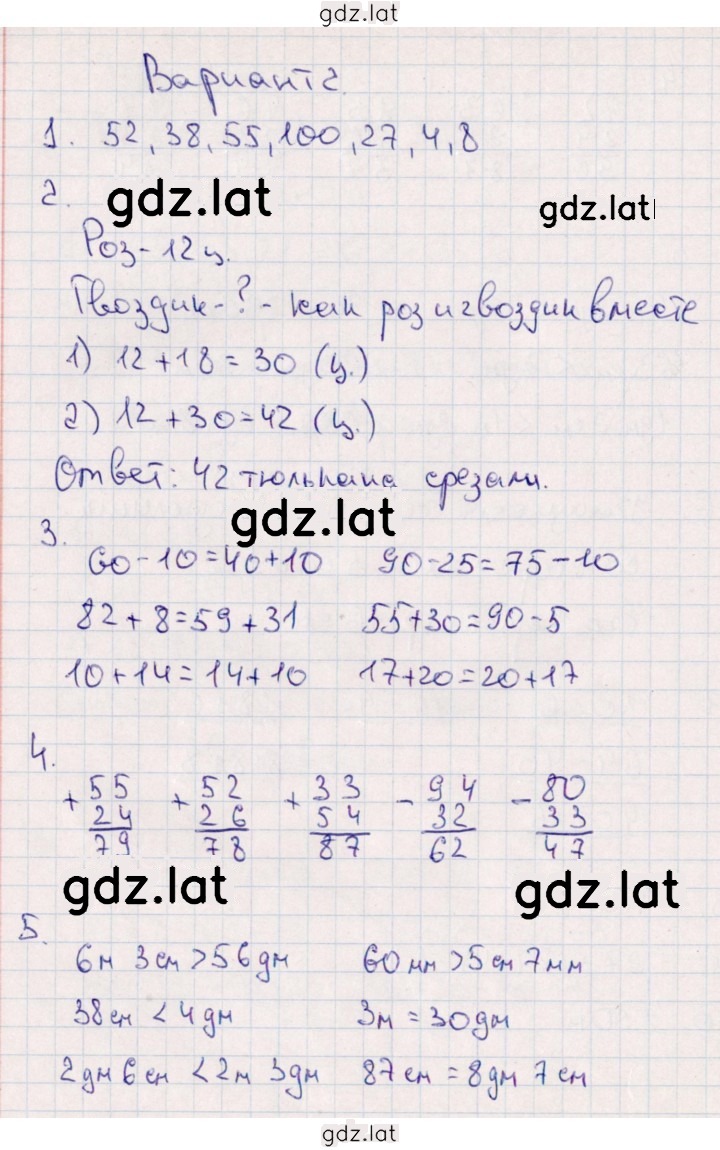 gdz.lat
Вариант 2.
1. 52, 38, 55, 100, 27, 4, 8
2.
gdz.lat gdz.lat
Роз - 12 ц.
Гвоздик - ? - как роз и гвоздик вместе
1) 12 + 18 = 30 (ц.)
2) 12 + 30 = 42 (ц.)
Ответ: 42 тюльпана срезали.
gdz.lat
3.
60 - 10 = 40 + 10 90 - 25 = 75 - 10
82 + 8 = 59 + 31 55 + 30 = 90 - 5
10 + 14 = 14 + 10 17 + 20 = 20 + 17
4.
+ 55 + 52 + 33 - 94 - 80
24 26 54 32 33
79 78 87 62 47
gdz.lat gdz.lat
5.
6м 3см > 56дм 60мм > 5см 7мм
38см < 4дм 3м = 30дм
2дм 6см < 2м 3дм 87см = 8дм 7см
gdz.lat